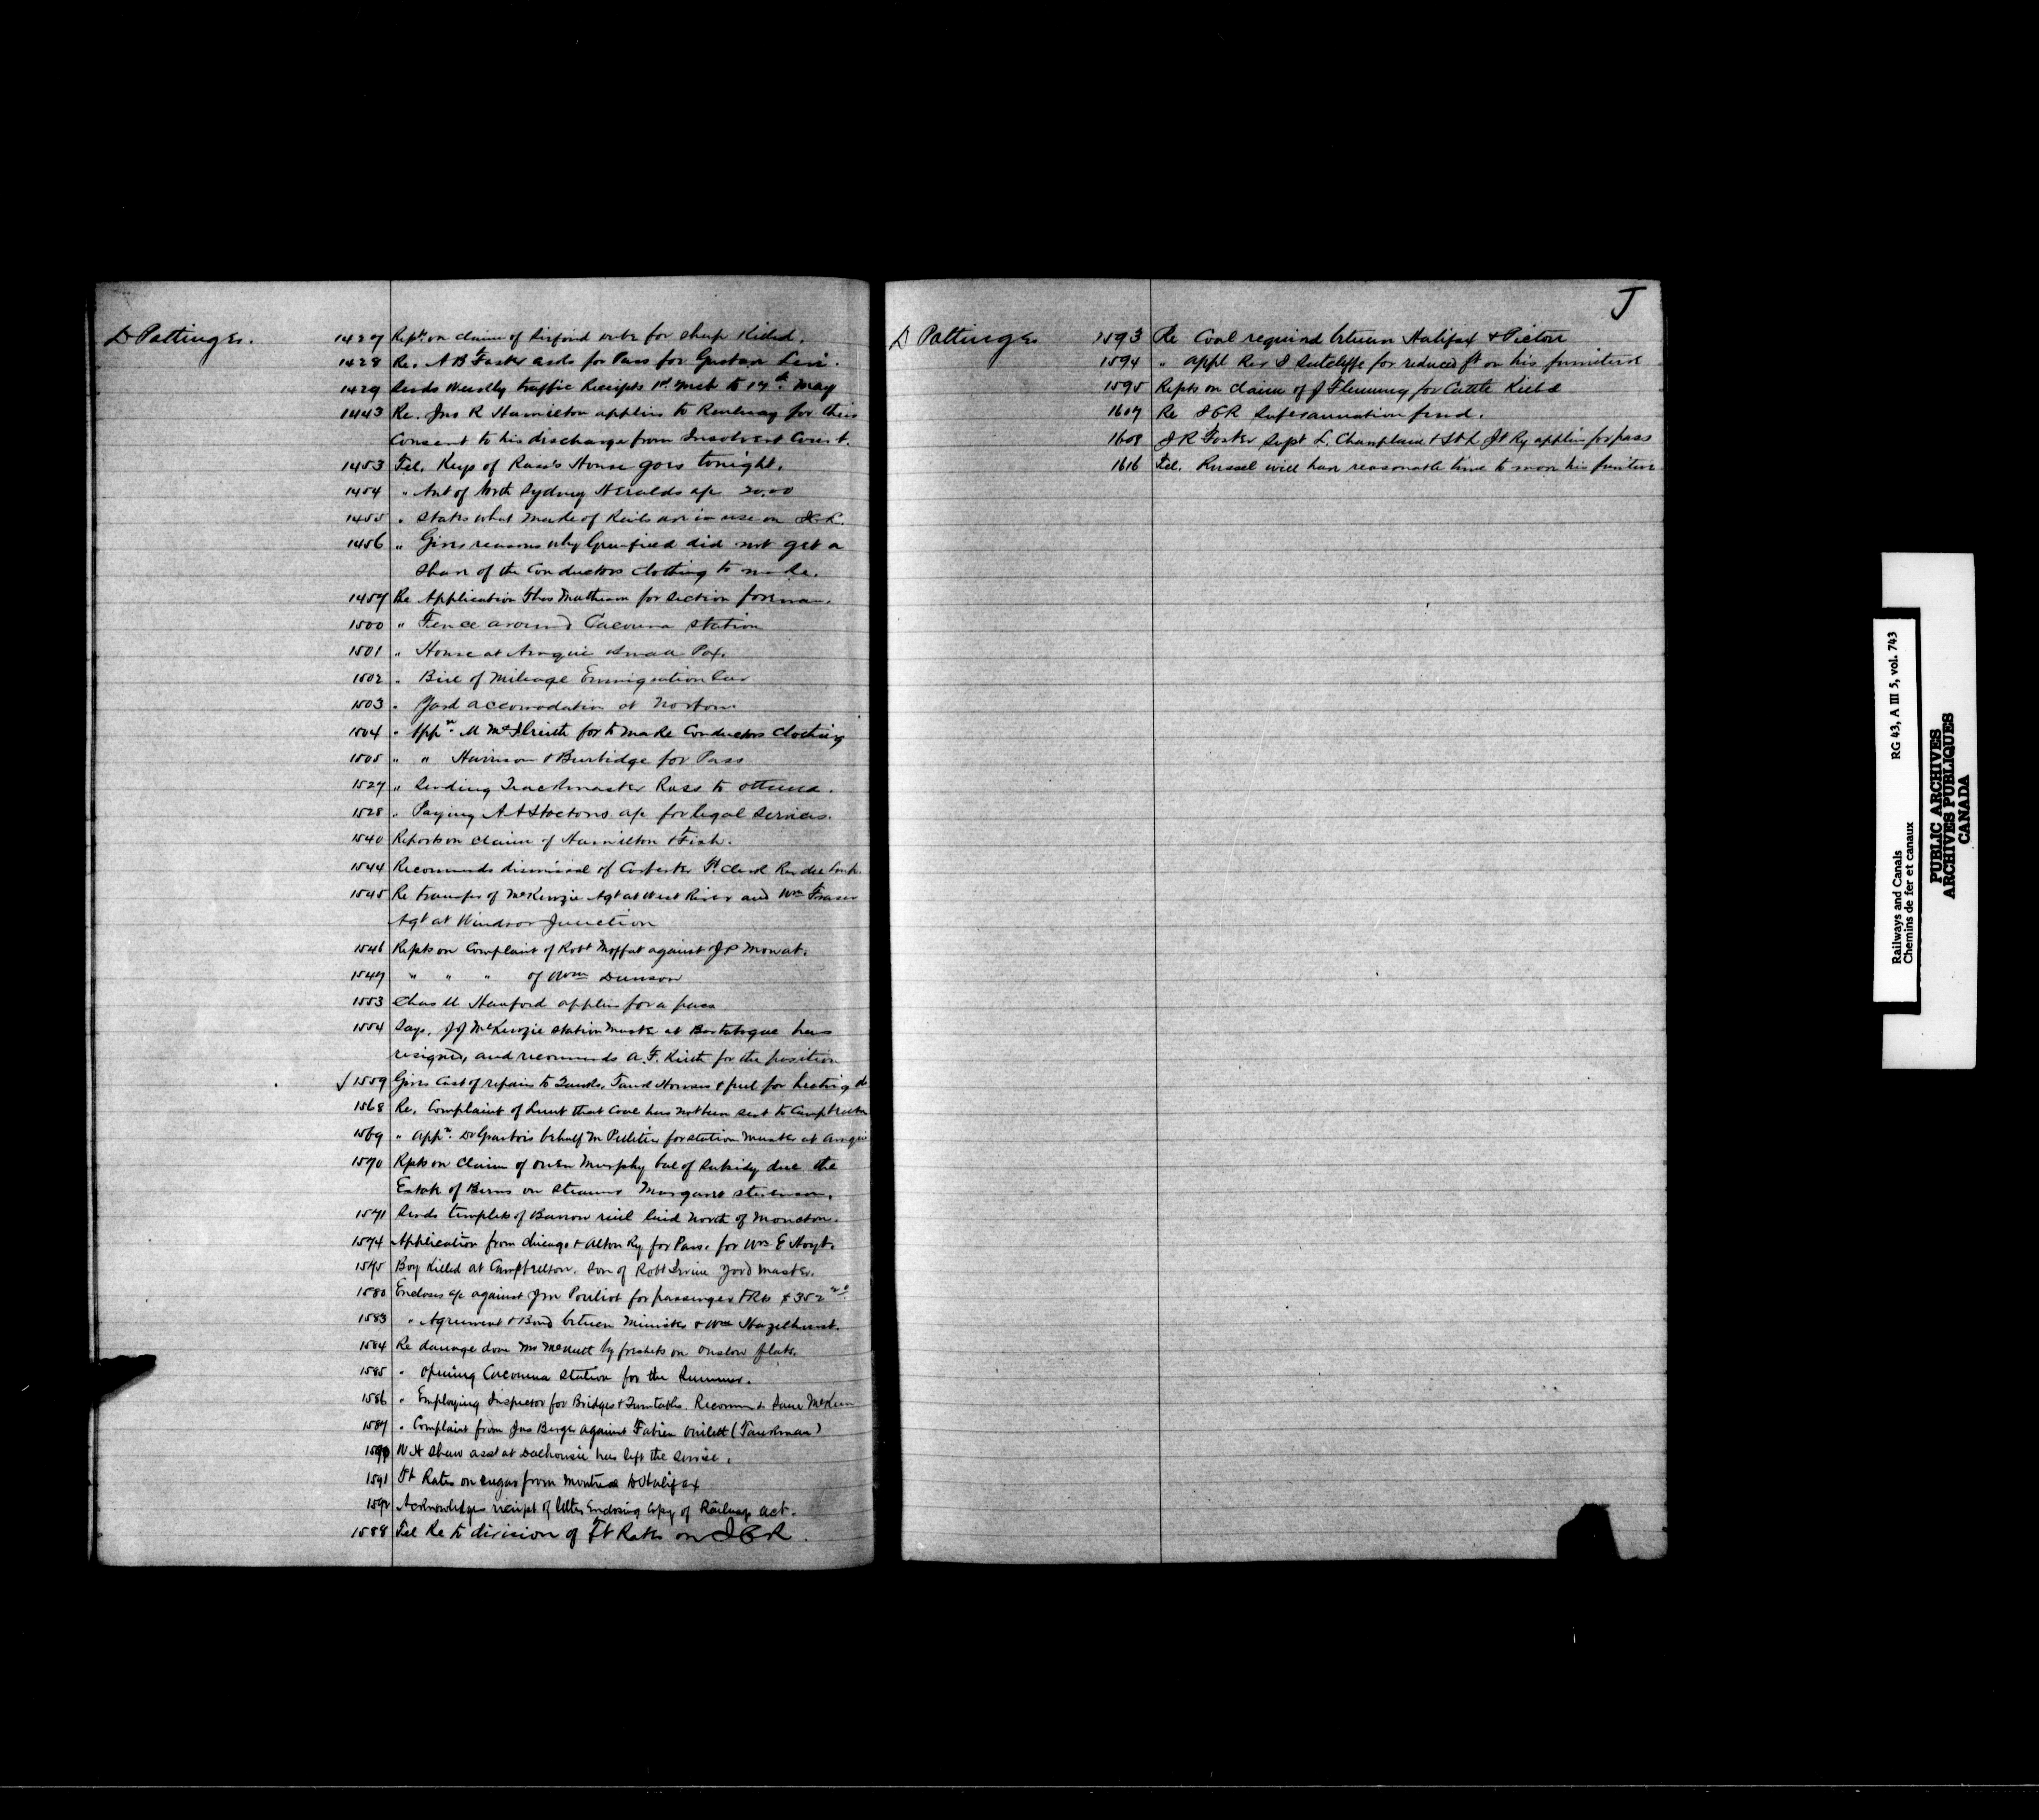 D Pottinger.
1427 Repts on claim of for sheep Killed.
1428 Re. A B Foster asks for Pass for Gustav Levi.
1429 Sends Weekly traffic Receipts 1st Mch to 17th May
1443 Re. Jno R Hamilton applies to Railway for their
Consent to his discharge from Insolvent Court.
1453 Tel. Keys of Ross's House goes tonight.
1454 " Amt of North Sydney Heralds a/c 20.00
1455 " States what make of Rails are in use on
1456 " Gives reasons why Greenfield did not get a
Share of the Conductors Clothing to make.
1457 Re Application Thos Matheson for Section foreman.
1500 " Fence around Cacouna Station
1501 " House at Amqui Small Pox.
1502 " Bill of Mileage Emmigration Car
1503 " Yard accomodation at Norton.
1504 " Appn. M McIlreith for to make Conductors Clothing
1505 " " Harrison & Burbidge for Pass
1527 " Sending Trackmaster Ross to Ottawa.
1528 " Paying A A Stocktons a/c for legal Services.
1540 Reports on claim of Hamilton & Fish.
1544 Recommends dismissal of Ft. Clerk
1545 Re transfer of McKenzie Agt at West River and Wm Fraser
Agt at Windsor Junction
1546 Repts on Complaint of Robt Moffat against J P Mowat.
1547 " " " of Wm Dunson
1553 Chas U Hanford applies for a pass
1554 Says. J J McKenzie Station Master at Bartibogue has
resigned, and recommends A. F. Keith for the position
✓ 1559 Gives Cost of repairs to Tanks, Tank Houses & fuel for heating do
1568 Re. Complaint of Lunt that Coal has not been sent to Campbellton
1569 " Appn. behalf M Pelletier for Station Master at Amqui
1570 Repts on Claim of Owen Murphy bal of Subsidy due the
Estate of Burns on Steamer Margaret Stevenson.
1571 Sends templets of Barrow rail laid North of Moncton.
1574 Application from Chicago & Alton Ry for Pass. for Wm E Hoyt.
1575 Boy Killed at Campbellton. Son of Robt Irvine Yard Master.
1580 Encloses a/c against Jm Pouliot for passenger tkts $352
1583 " Agreement & Bond between Minister & Wm Hazelhurst.
1584 Re damage done Mr McNutt by freshets on Onslow flats.
1585 " Opening Cacouna Station for the Summer.
1586 " Employing Inspector for Bridges & Turntables. Recommds
1587 " Complaint from Jas Berger against Fabien Ouilett (Tankman)
1590 W H Shaw asst at Dalhousie has left the Service.
1591 Ft Rates on sugar from Montreal to Halifax
1592 Acknowledges receipt of letter Enclosing Copy of Railway Act.
1588 Tel Re to division of Ft Rates on I C R.
J
D Pottinger
1593 Re Coal required between Halifax & Pictou
1594 " appl Rev I Sutcliffe for reduced ft on his furniture
1595 Repts on Claim of J Flemming for Cattle Killed
1607 Re I C R Superannuation fund.
1608 J R Foster Supt L. Champlain & St L Jt Ry applies for pass
1616 Tel. Russel will have reasonable time to move his furniture
Railways and Canals RG 43, A III 5, vol. 743
Chemins de fer et canaux
PUBLIC ARCHIVES
ARCHIVES PUBLIQUES
CANADA